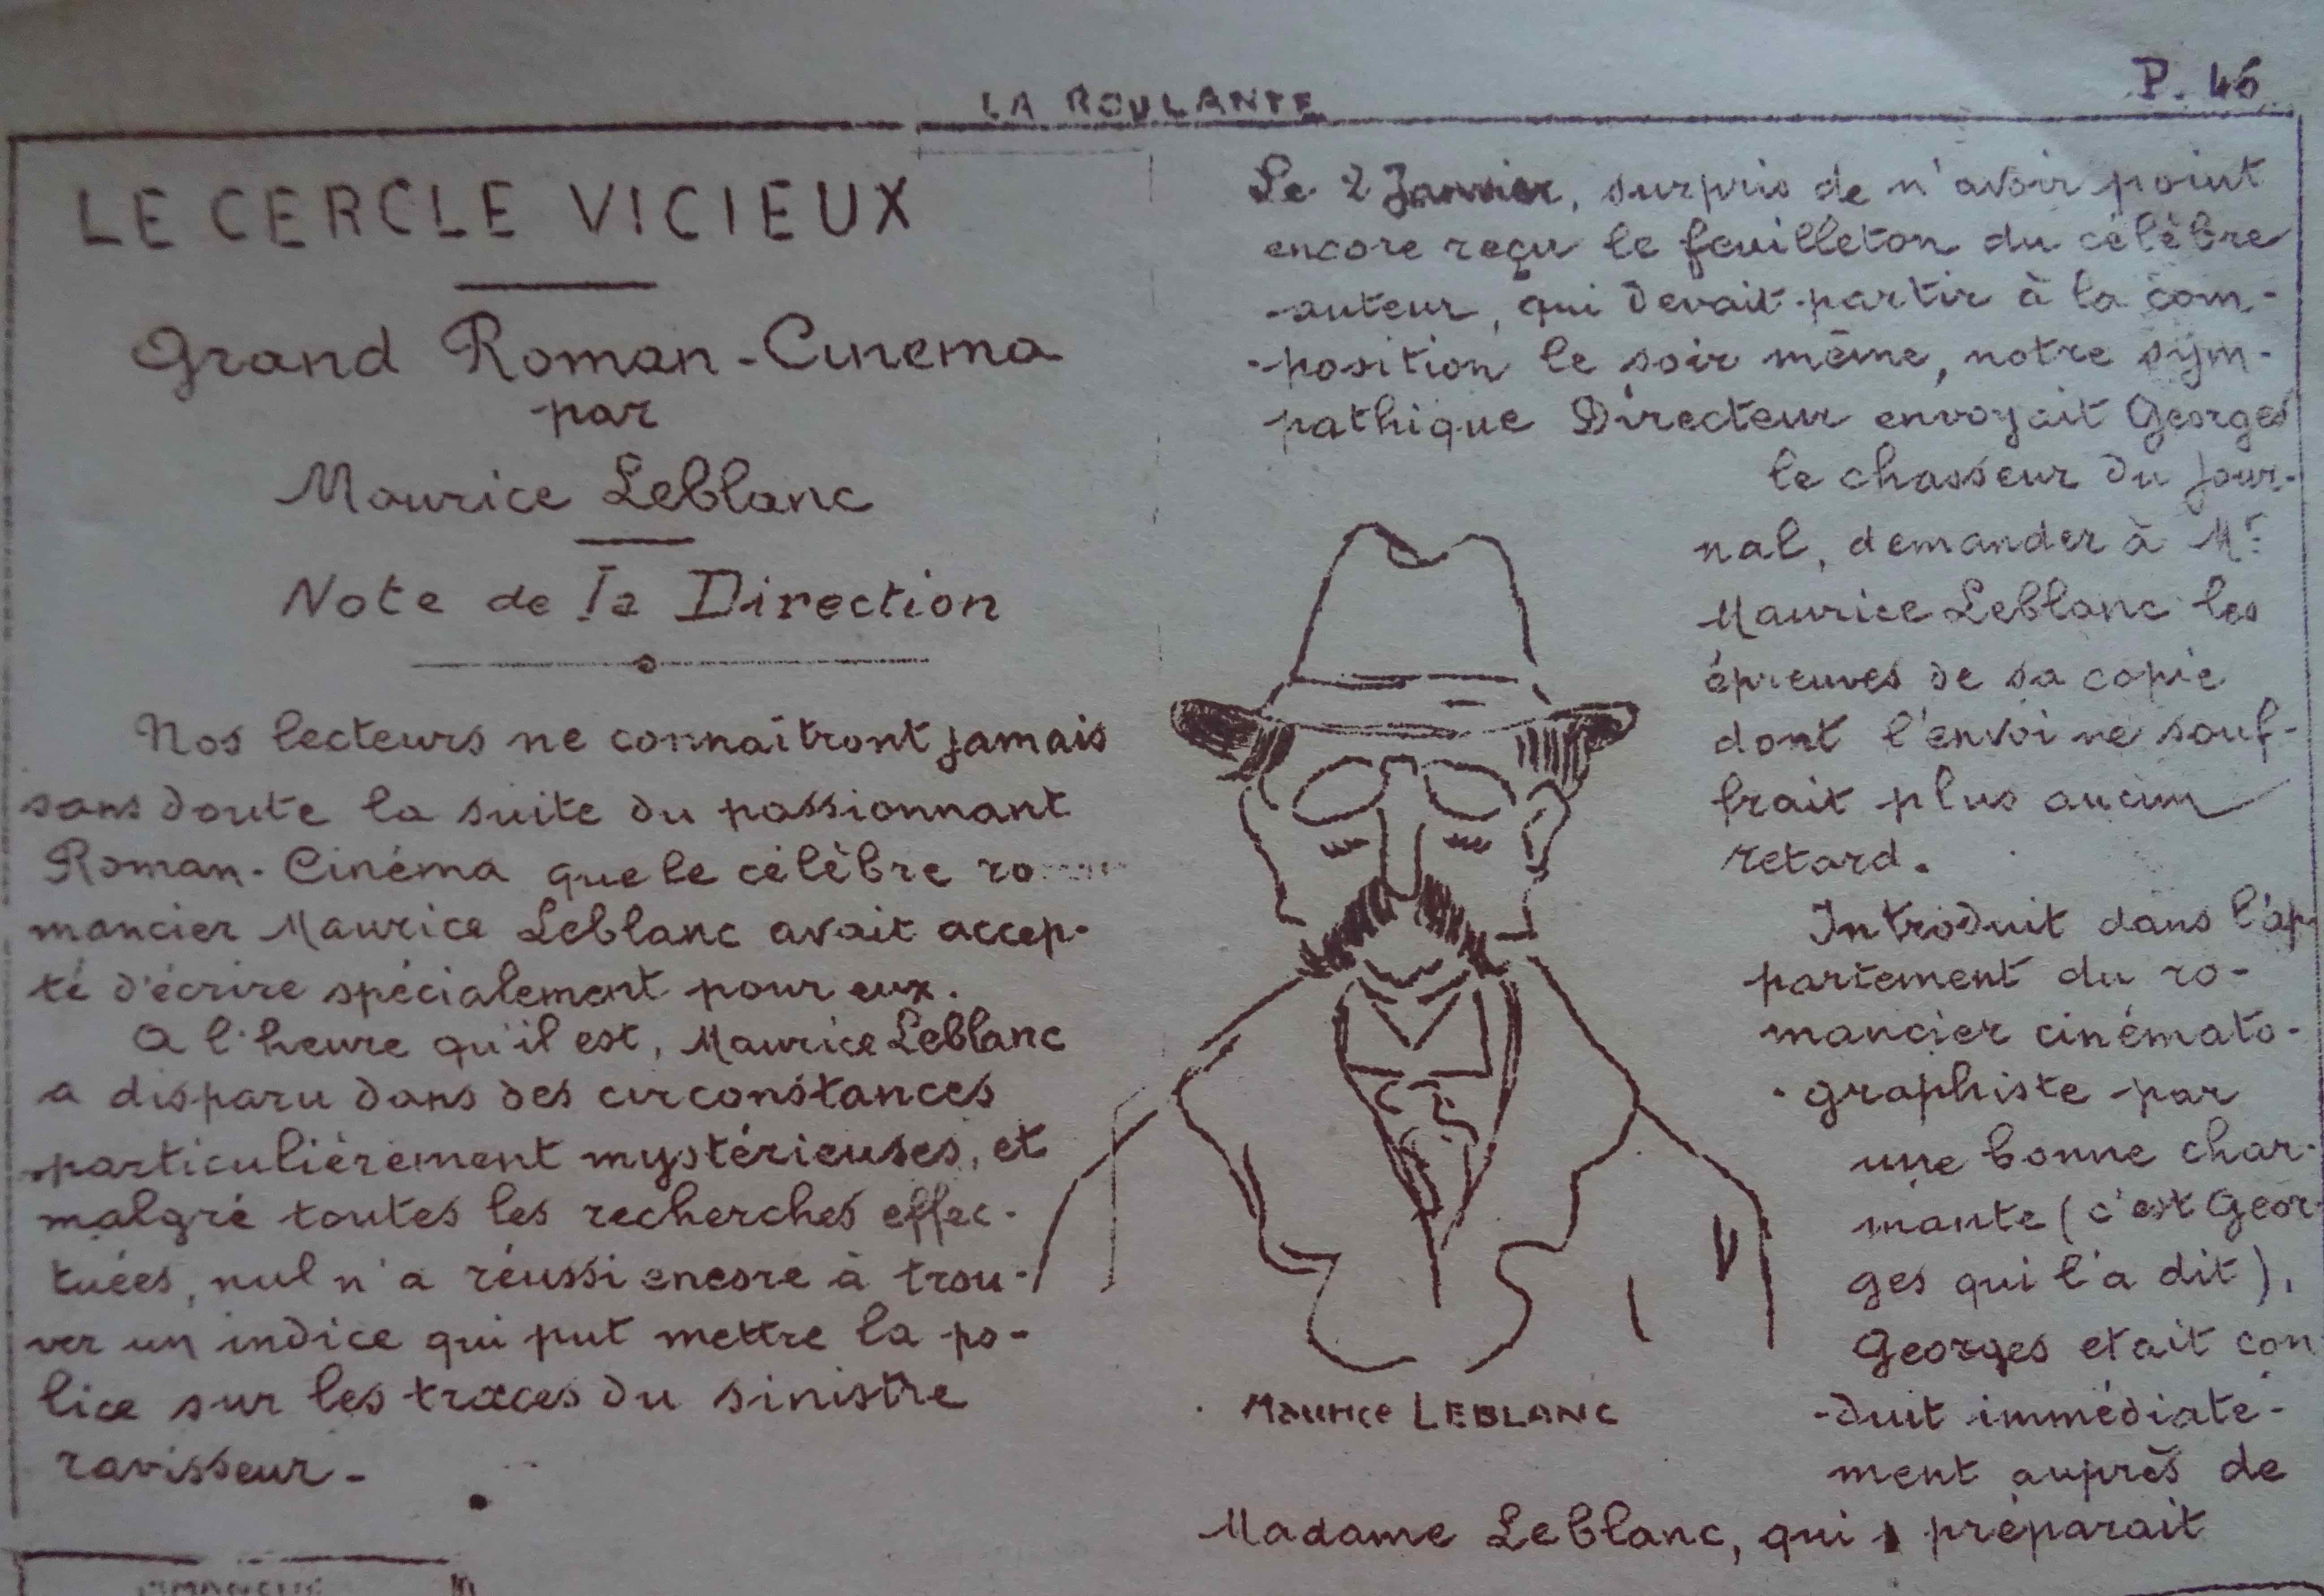 LA ROULANTE
P. 46
LE CERCLE VICIEUX
Grand Roman-Cinema
par
Maurice Leblanc
Note de la Direction
Nos lecteurs ne connaîtront jamais
sans doute la suite du passionnant
Roman-Cinéma que le célèbre ro
mancier Maurice Leblanc avait accep-
té d'écrire spécialement pour eux.
A l'heure qu'il est, Maurice Leblanc
a disparu dans des circonstances
particulièrement mystérieuses, et
malgré toutes les recherches effec-
tuées, nul n'a réussi encore à trou-
ver un indice qui put mettre la po-
lice sur les traces du sinistre
ravisseur-
Le 2 Janvier, surpris de n'avoir point
encore reçu le feuilleton du célèbre
auteur, qui devait partir à la com-
position le soir même, notre sym-
pathique Directeur envoyait Georges
le chasseur du jour-
nal, demander à Mr
Maurice Leblanc les
épreuves de sa copie
dont l'envoi ne souf-
frait plus aucun
retard.
Introduit dans l'ap
partement du ro-
mancier cinémato-
graphiste par
une bonne char-
mante (c'est Geor
ges qui l'a dit),
Georges etait con
duit immédiate-
ment auprès de
Madame Leblanc, qui préparait
Maurice LEBLANC